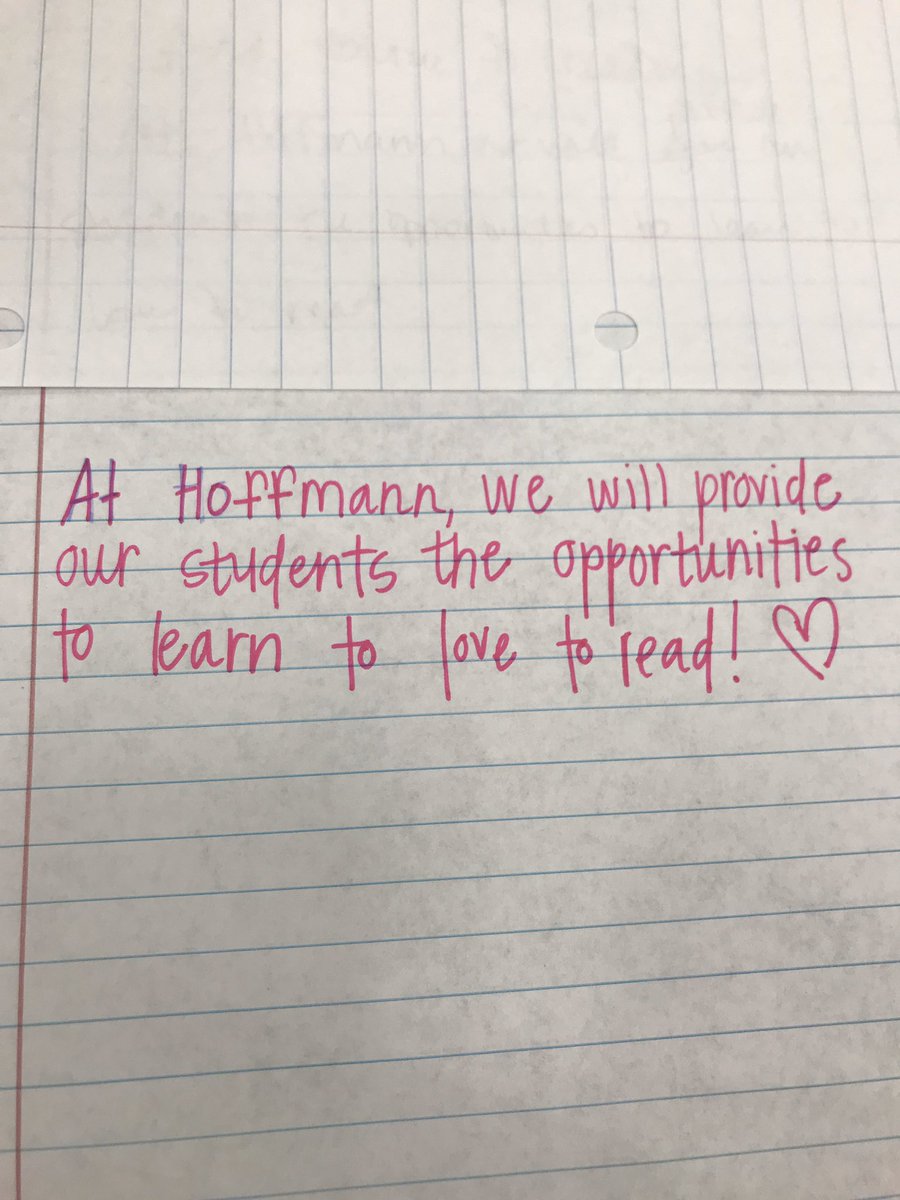 At Hoffmann, we will provide
our students the opportunities
to learn to love to read! ♡